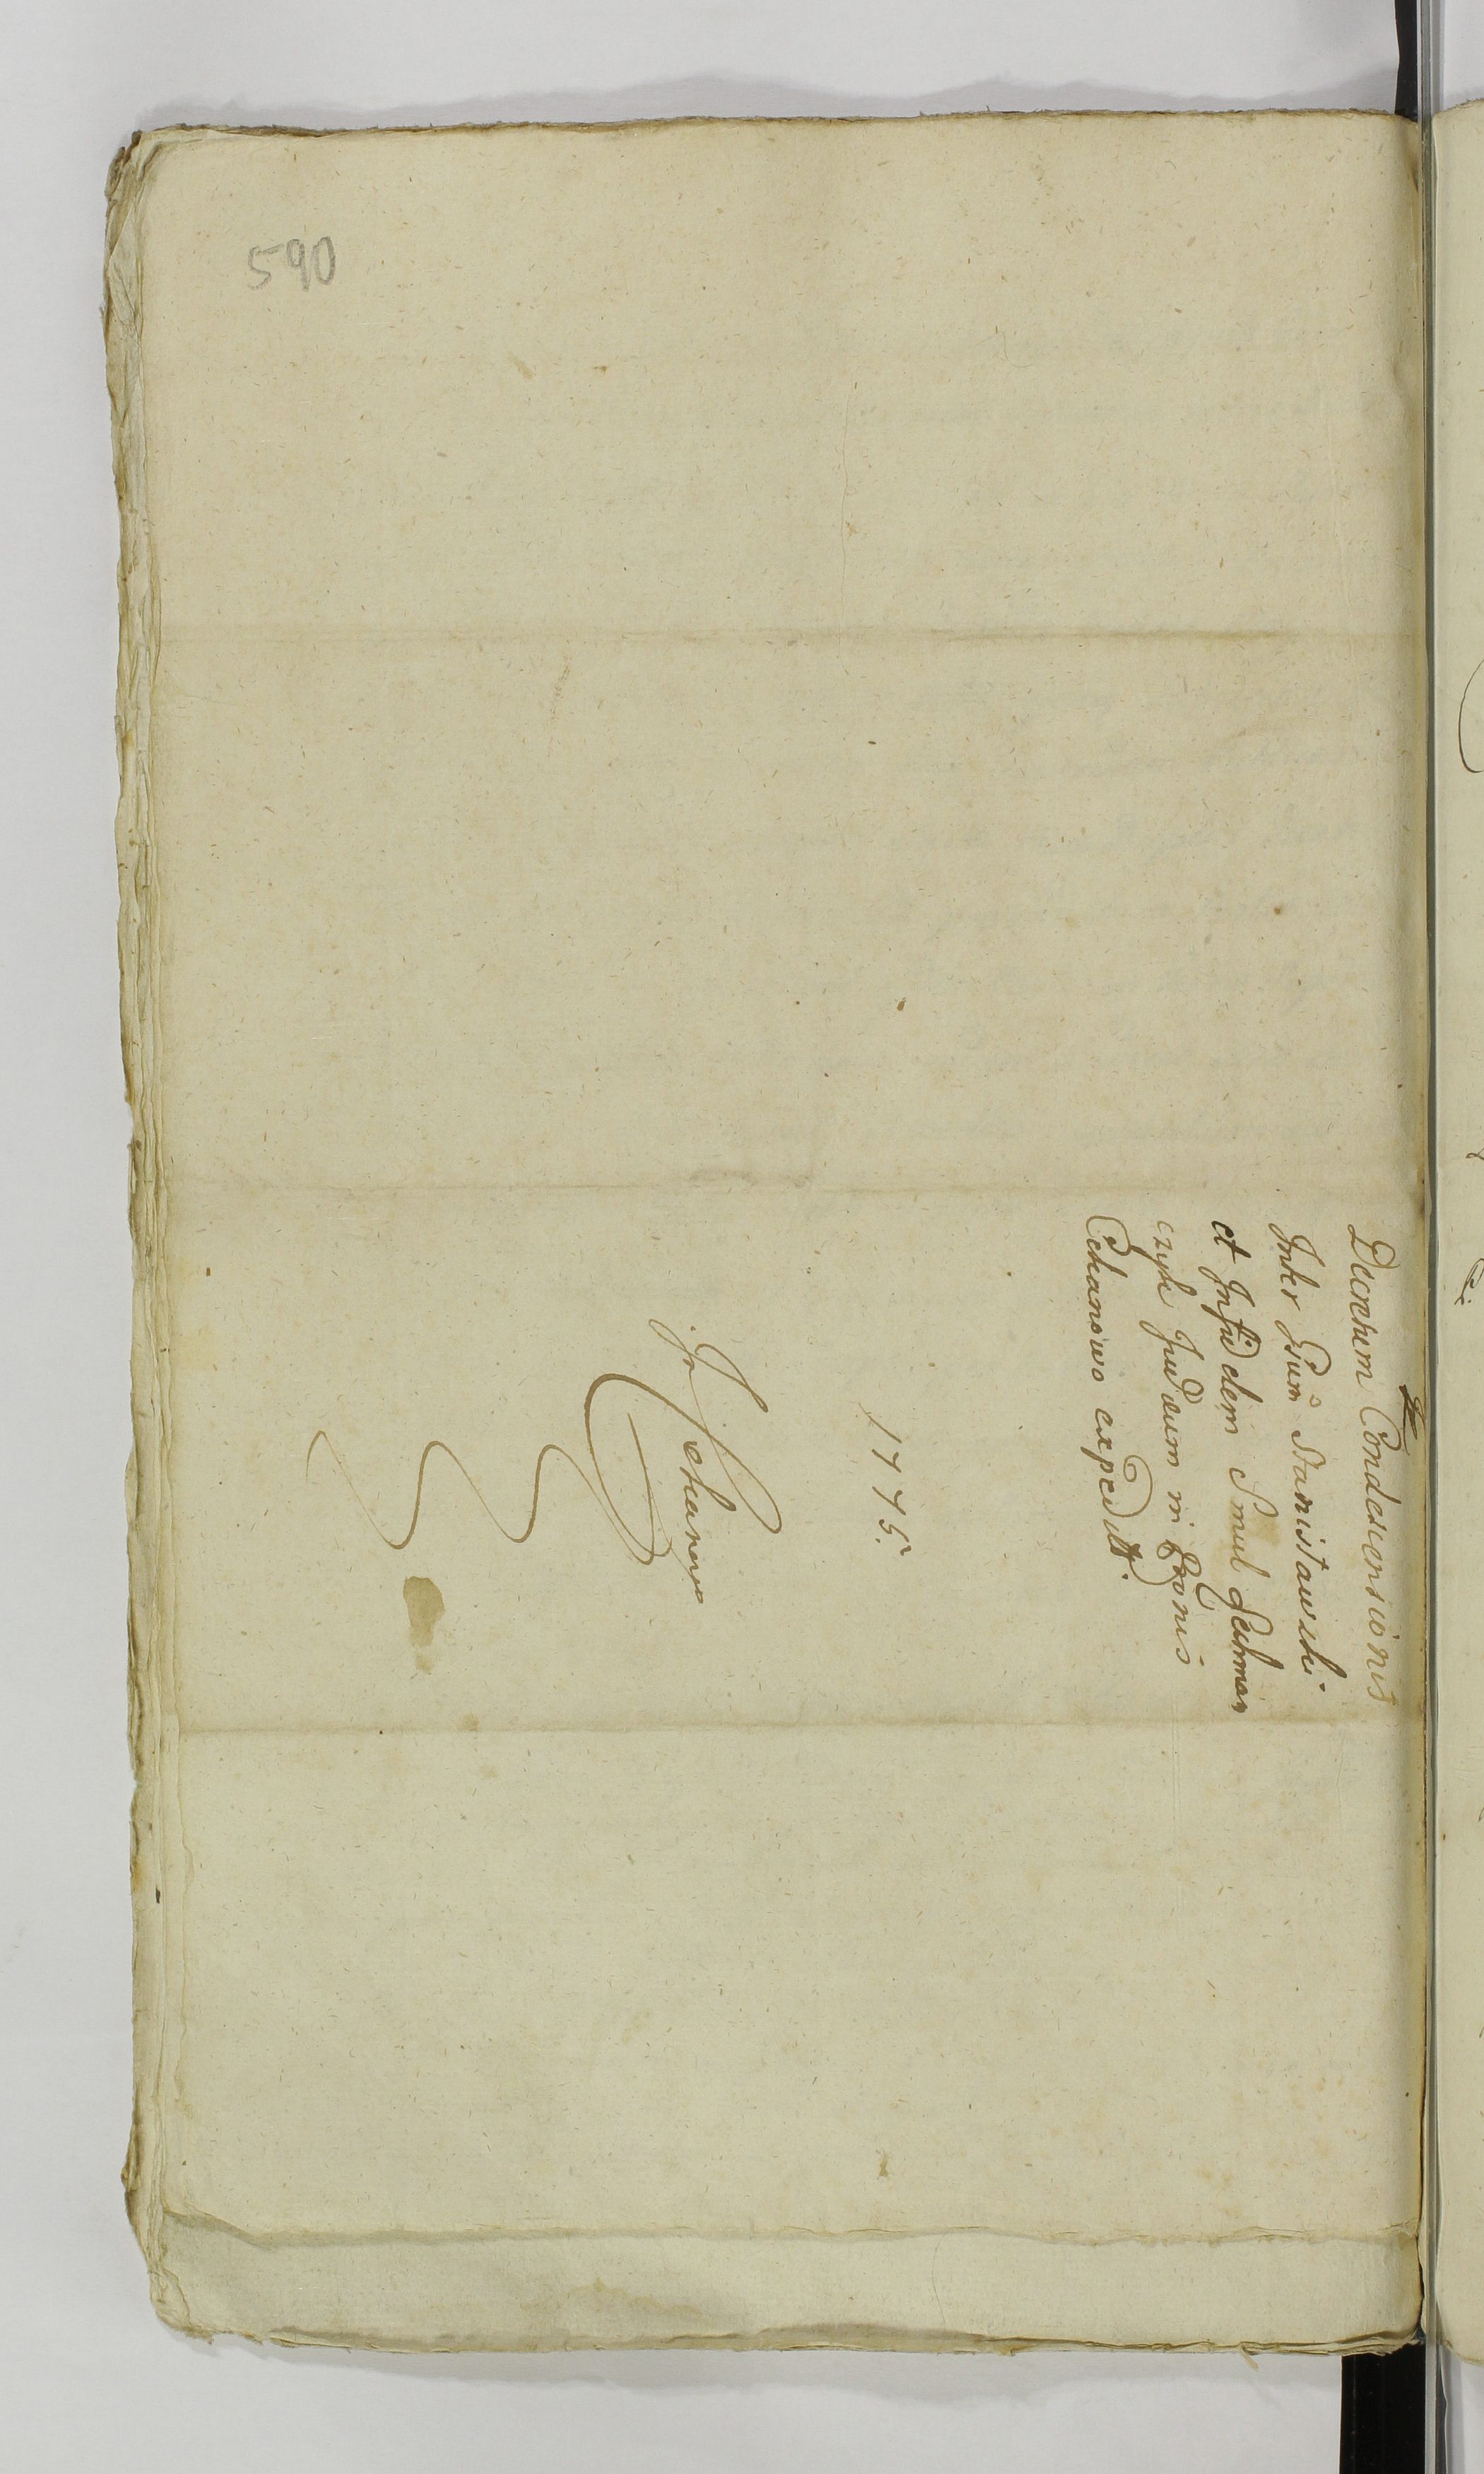 590
Decretum Condescensionis
Inter Gsum Stanisławski
et Infidelem Smul Lachman
czyk Judæum in Bonis
Cekanowo expedit.
1775.